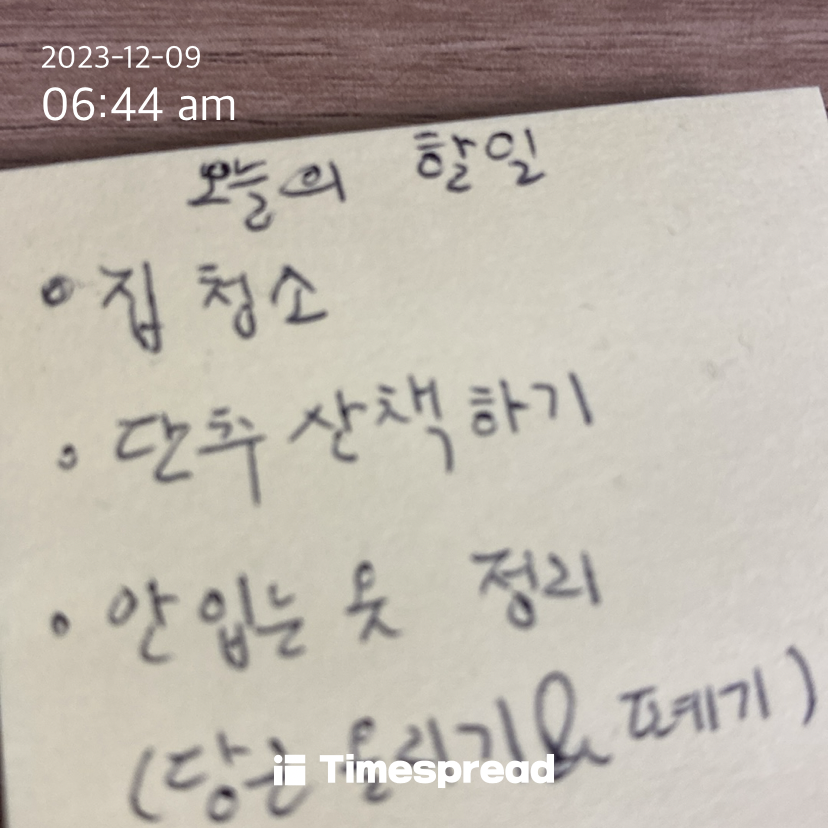 2023-12-09
06:44 am
오늘의 할일
• 집 청소
• 단추 산책하기
• 안 입는 옷 정리
(당근 올리기 & 폐기)
Timespread